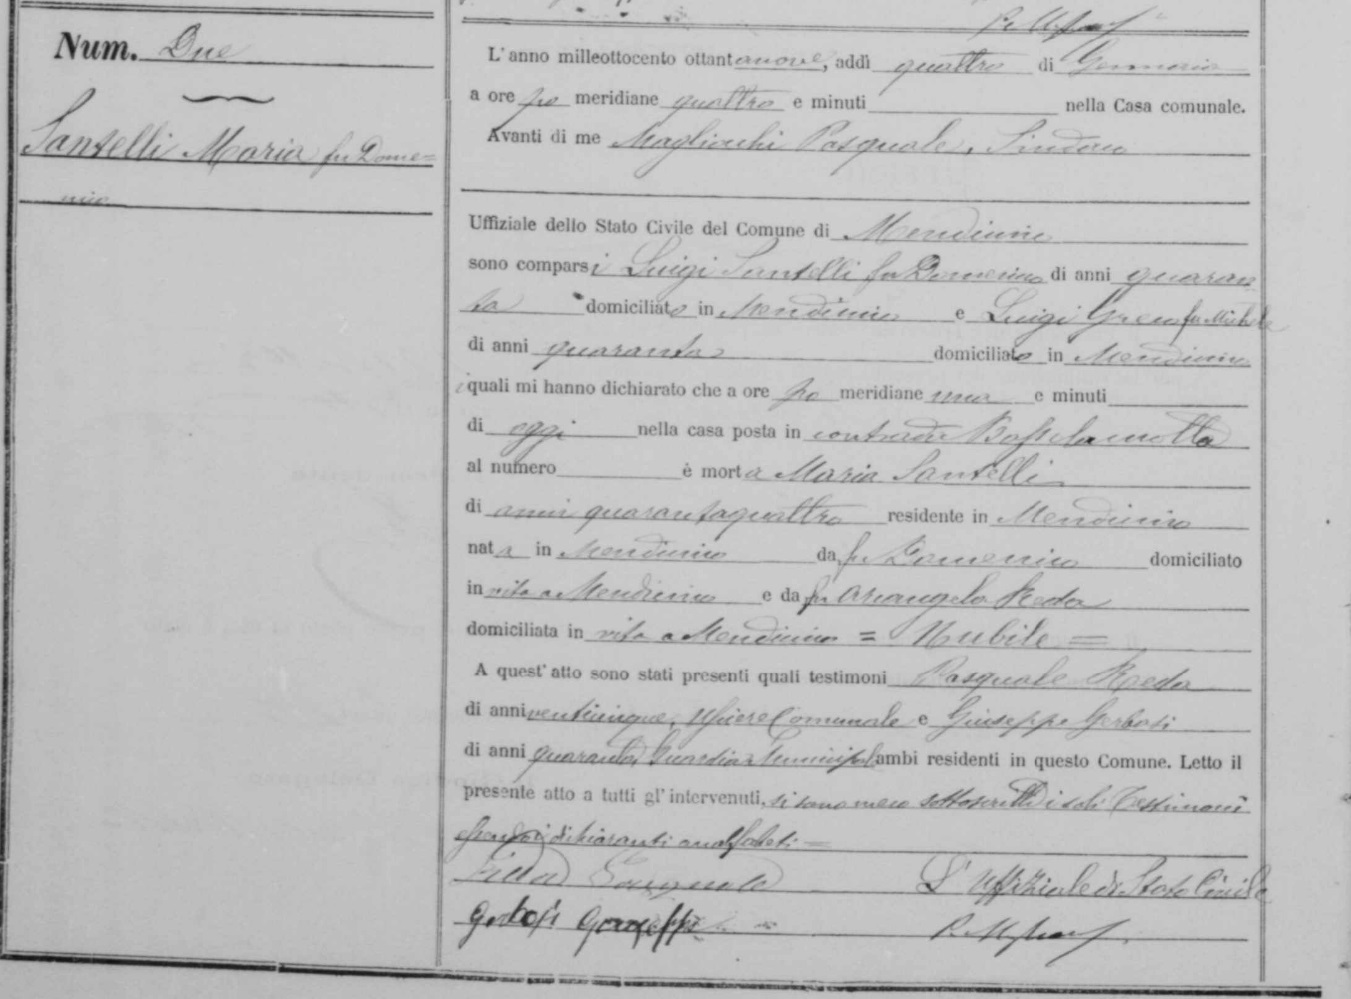 Num. Due
Santelli Maria fu Dome=
nico
L'anno milleottocento ottantanove, addì quattro di Gennaio
a ore po meridiane quattro e minuti nella Casa comunale.
Avanti di me Magliocchi Pasquale, Sindaco
Uffiziale dello Stato Civile del Comune di Mendicino
sono comparsi Luigi Santelli fu Domenico di anni quaran
ta domiciliato in Mendicino e Luigi Greco fu Michele
di anni quaranta domiciliato in Mendicino
i quali mi hanno dichiarato che a ore po meridiane una e minuti
di oggi nella casa posta in contrada
al numero è morta Maria Santelli
di anni quarantaquattro residente in Mendicino
nata in Mendicino da fu Domenico domiciliato
in vita a Mendicino e da fu Arcangela Reda
domiciliata in vita a Mendicino = Nubile =
A quest'atto sono stati presenti quali testimoni Pasquale Reda
di anni venticinque, Usciere Comunale e Giuseppe Gerbasi
di anni quaranta, Guardia Municipale ambi residenti in questo Comune. Letto il
presente atto a tutti gl'intervenuti, si sono meco sottoscritti i soli testimoni
essendo i dichiaranti analfabeti =
L'Uffiziale di Stato Civile
Gerbasi Giuseppe